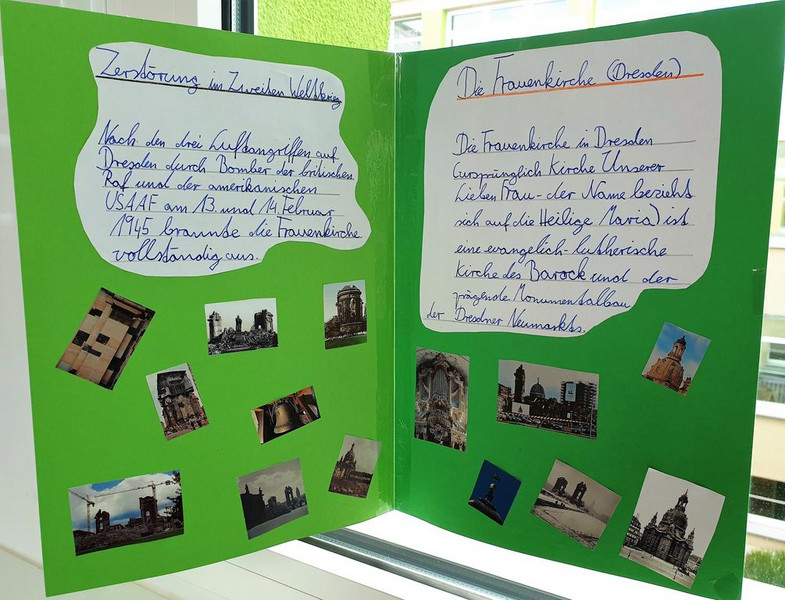 Zerstörung im Zweiten Weltkrieg
Nach den drei Luftangriffen auf
Dresden durch Bomber der britischen
Raf und der amerikanischen
USAAF am 13. und 14. Februar
1945 brannte die Frauenkirche
vollständig aus.
Die Frauenkirche (Dresden)
Die Frauenkirche in Dresden
(ursprünglich Kirche Unserer
Lieben Frau - der Name bezieht
sich auf die Heilige Maria) ist
eine evangelich-lutherische
Kirche des Barock und der
prägende Monumentalbau
der Dresdner Neumarkts.